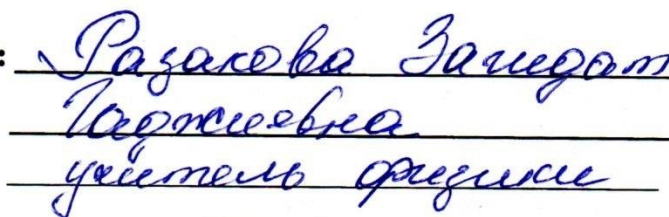 : Разакова Загидат
Гаджиевна
учитель физики